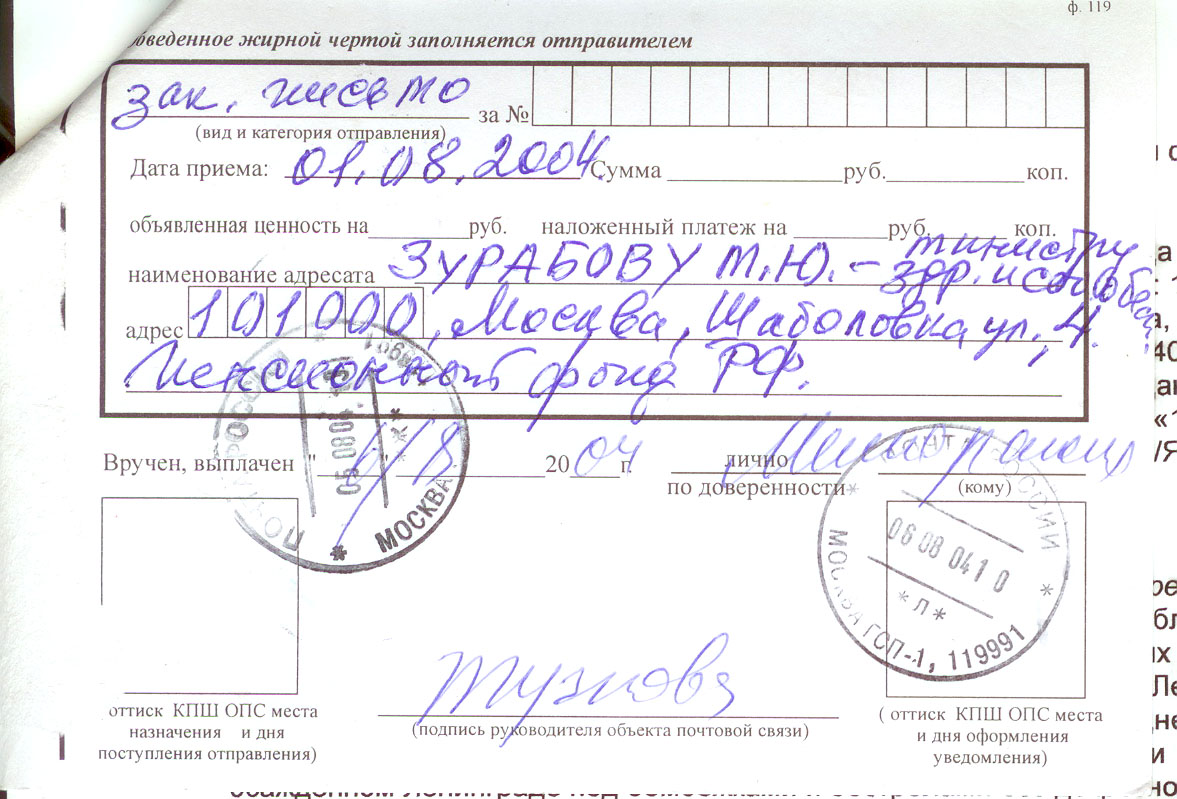 ф. 119
обведенное жирной чертой заполняется отправителем
зак. письмо за №
(вид и категория отправления)
Дата приема: 01.08.2004 Сумма руб. коп.
объявленная ценность на руб. наложенный платеж на руб. коп.
наименование адресата ЗУРАБОВУ М.Ю. – министру
здр. и соц. обесп.
адрес 101000, Москва, Шаболовка ул., 4.
Пенсионный фонд РФ.
Вручен, выплачен " 6/8 " 20 04 г. лично
по доверенности (кому)
ПОЧТА РОССИИ * МОСКВА
06 08 04 10
* Л *
МОСКВА ГСП-1, 119991
оттиск КПШ ОПС места
назначения и дня
поступления отправления)
(подпись руководителя объекта почтовой связи)
( оттиск КПШ ОПС места
и дня оформления
уведомления)